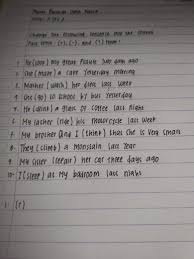 Change the following sentence into the
past tense (+), (-), and (?) tense!
1. He (    ) my great           two days ago
2. She (make) a cake yesterday morning
3. Mother (wash) her        last week
4. She (go) to school by bus yesterday
5. He (drink) a glass of coffee last night
6. My father (ride) his motorcycle last week
7. My brother and I (think) that she is very smart
8. They (climb) a mountain last year
9. My sister (repair) her car three days ago
10. I (sleep) at my bedroom last night
1. (+)